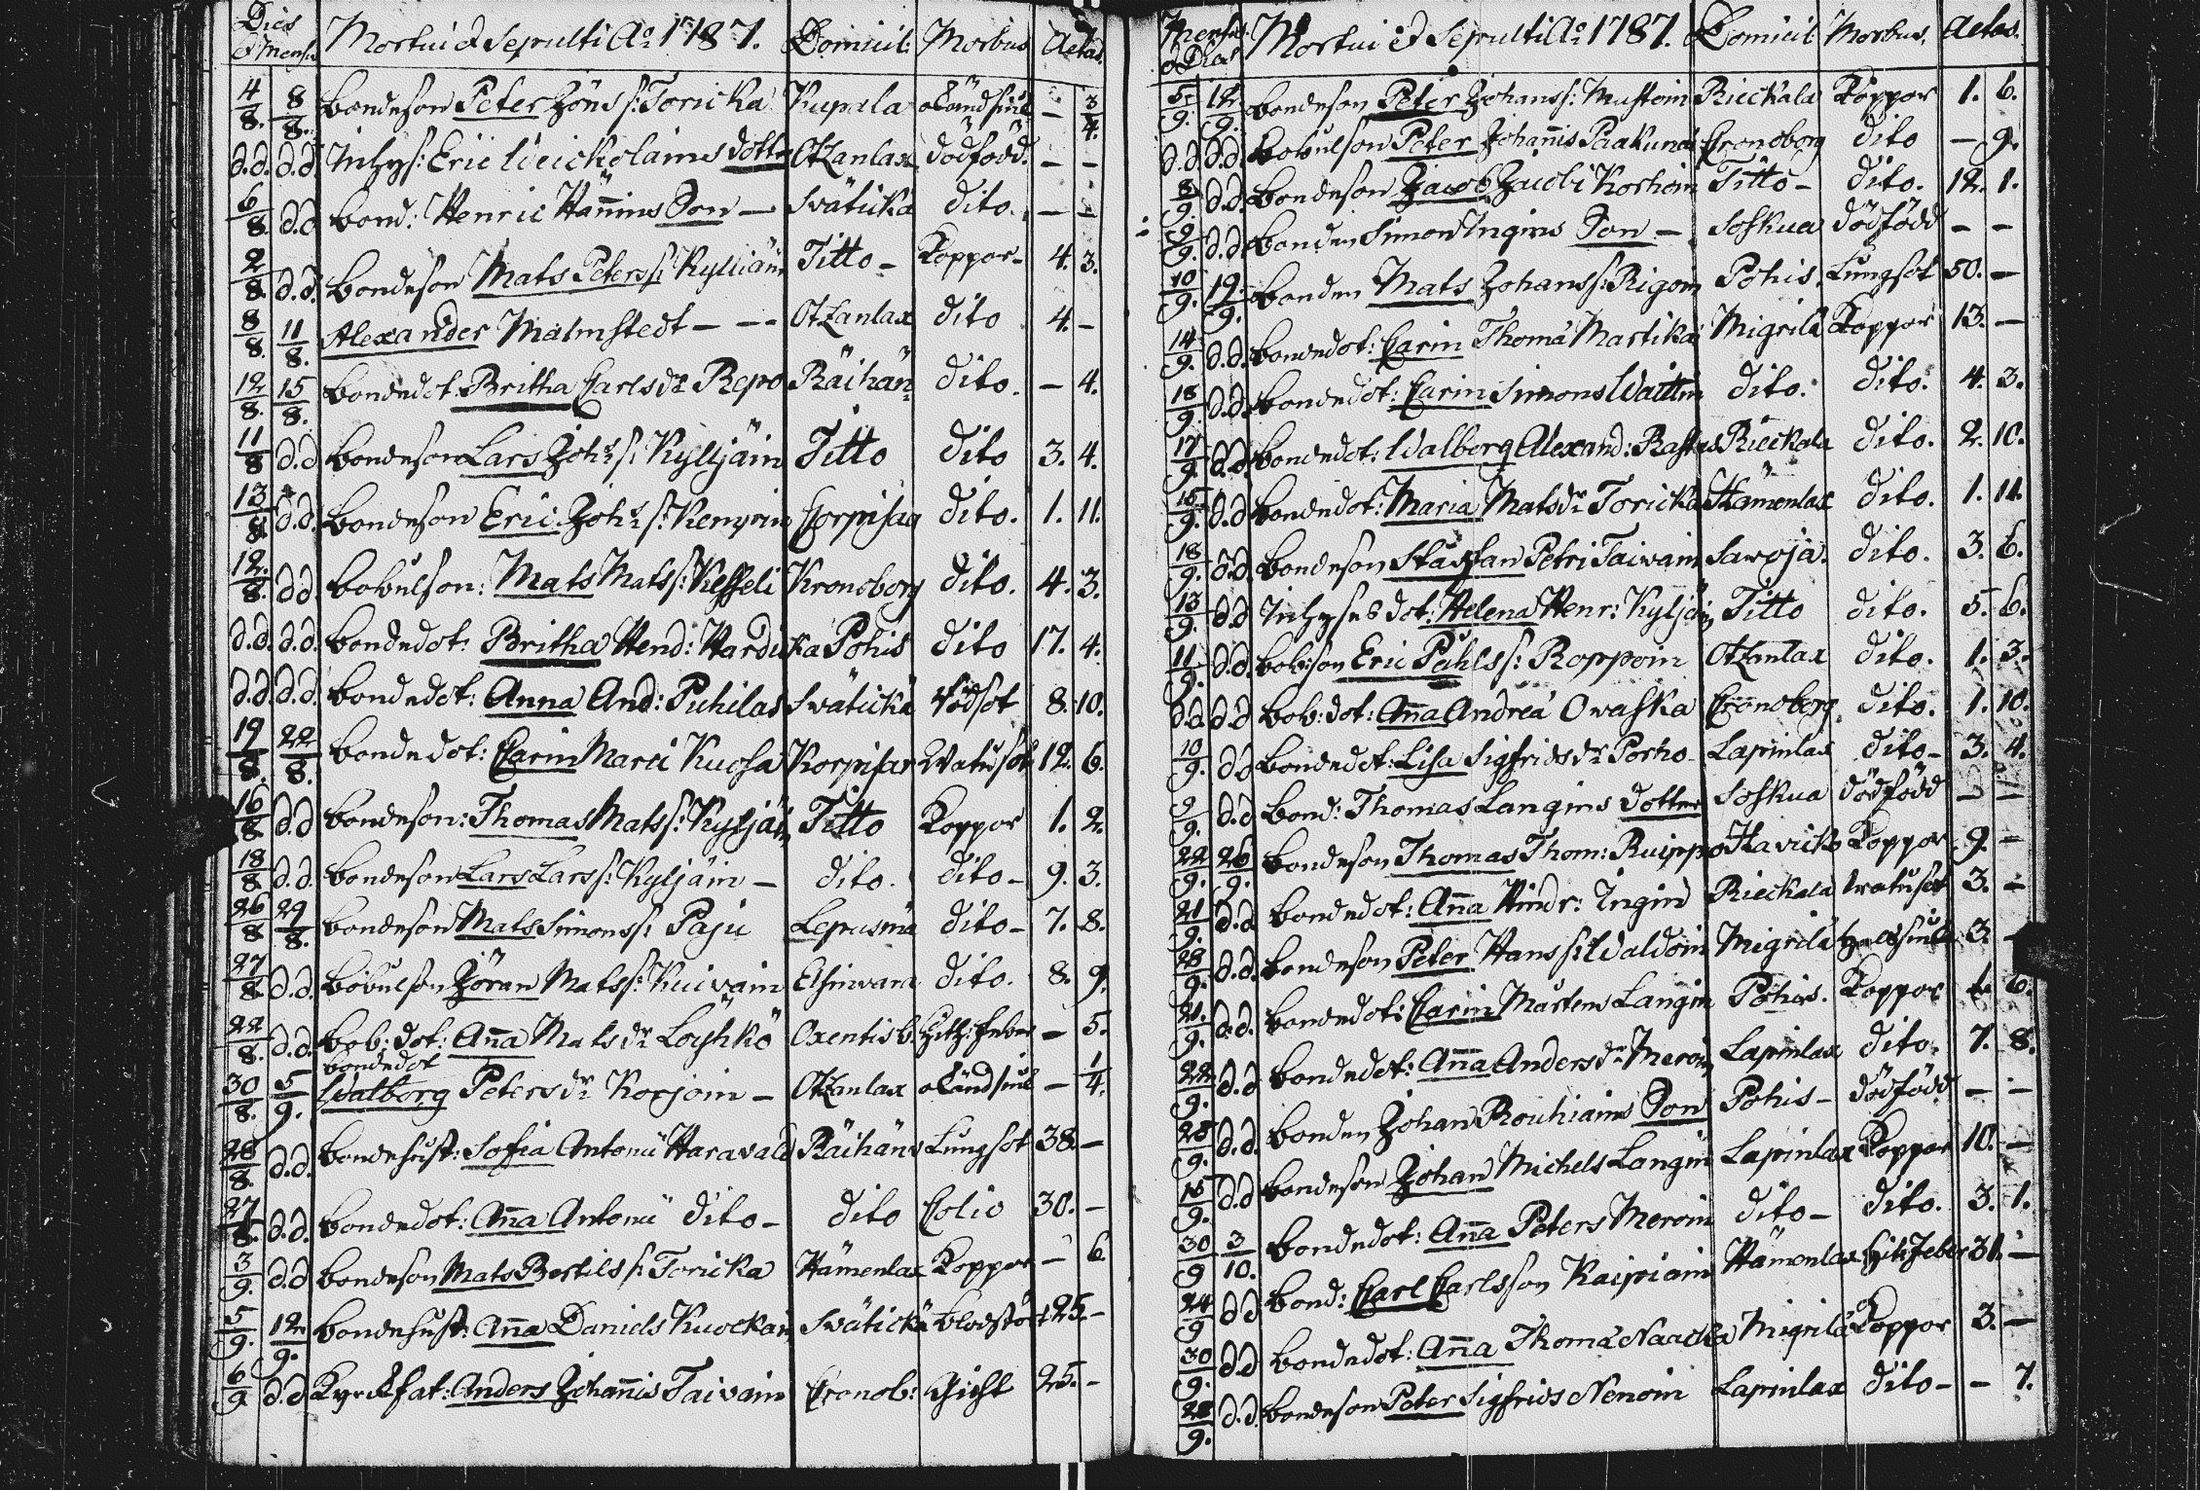 Dies & Mens. Mortui & Sepulti Ao: 1787. Domicil: Morbus Aetas.
4/8. 8/8. bondeson Peter Jöns s: Toricka Kupala okändsiuk — 3/4.
d.d. d.d. Inhys: Eric dotter Otzanlax dödfödd. — —
6/8 d.d bond: Henric Hännins Son — Svätickä dito. — —
2/8. d.d. bondeson Mats Peterss: Kylliäin Titto — Koppor — 4. 3.
8/8. 11/8. Alexander Malmstedt — — — Otzanlax dito 4. —
12/8. 15/8. bondedot. Britha Carlsdr Repo Räihän: dito. — 4.
11/8 d.d bondeson Lars Johs s: Kylljäin Titto dito 3. 4.
13/8. d.d. bondeson Eric Johs s: Kenpoin Corpisaa dito. 1. 11.
12./8. d.d bobulson: Mats Mats s: Kesseli Kronoborg dito. 4. 3.
d.d. d.d. bondedot: Britha Hend: Hardicka Pohis dito 17. 4.
d.d. d.d. bondedot: Anna And: Puhilas Svätickä rödsot 8. 10.
19/8. 22/8. bondedot: Carin Marci Kuosa Korpisar Watusot 12. 6.
16/8. d.d bondeson: Thomas Mats s: Kyljäin Titto Koppor 1. 2.
18/8 d.d. bondeson Lars Lars s: Kyljäin — dito. dito — 9. 3.
26/8 29/8. bondeson Mats Simonss: Paju Lepusmä dito — 7. 8.
27/8. d.d. bobulson Jöran Mats s: Kuivain Elsinvara dito. 8. 9.
22/8. d.d. bob: dot: Aña Matsdr Loyhkö Oxentis b. Hitz: feber — 5.
30/8. 5/9. bondedot Walborg Petersdr Korjoin — Otzanlax okändsiuk — 1/4.
28/8. d.d. bondehust: Sofia Antonii Haravald Räihäns Lungsot 38. —
27/8. d.d. bondedot: Aña Antonii dito — dito Colic 30. —
3/9. d.d bondeson Mats Bertils s: Toricka Hämenlax Koppor — 6
5/9. 12/9. bondehust: Aña Daniels Kuockain Svätickä blodstört 25. —
6/9 d.d Kyrckfat: Anders Johañis Taivain Cronob: Gicht 25. —
Mens. & Dies Mortui et Sepulti Ao: 1787. Domicil Morbus. Aetas.
5/9. 12/9. bondeson Peter Johanss: Mustoin Rieckala Koppor 1. 6.
d.d d.d. bobulson Peter Johañis Paakunai Cronoborg dito — 9.
8/9. d.d bondeson Jacob Jacobi Korhoin Titto — dito. 12. 1.
9/9. d.d bonden Simon Ingins Son — Soskua dödfödd — —
10/9. 19/9. bonden Mats Johanss: Rigoin Pohis. Lungsot 50. —
14/9. d.d. bondedot: Carin Thomæ Martikai Migrilä Koppor 13. —
18/9. d.d. bondedot: Carin Simons Waittin dito. dito. 4. 3.
17/9. d.d bondedot: Walborg Alexand: Rastas Rieckala dito. 2. 10.
15/9. d.d bondedot: Maria Matsdr Toricka Hämenlax dito. 1. 11.
18/9. d.d. bondeson Staffan Petri Taivain Savoja. dito. 3. 6.
13/9. d.d Inhyses dot: Helena Henr: Kyljäin Titto dito. 5. 6.
11/9. d.d. bob: son Eric Påhls s: Roppoin Otzanlax dito. 1. 3.
d.d d.d bob: dot: Aña Andreæ Owaska Cronoborg dito. 1. 10.
10/9. d.d bondedot: Lisa Sigfridsdr Porho Lapinlax dito — 3. 4.
9/9. d.d bond: Thomas Langins dotter Soskua dödfödd — —
22/9. 26/9. bondeson Thomas Thom: Ruippo Koppor 9. —
21/9. d.d bondedot: Aña Hindr: Ingin Rieckala watusot 3. —
28/9. d.d. bondeson Peter Hans s: Waldoin Migrilä halssiuk 3. —
21./9. d.d. bondedot: Carin Mårtens Langin Pohis. Koppor 1. 6.
22/9. d.d bondedot: Aña Andersdr Meroin Lapinlax dito. 7. 8.
28/9. d.d. bonden Johan Rouhiains Son Pohis — dödfödd — —
15/9. d.d bondeson Johan Michels Langin Lapinlax Koppor 10. —
30/9 3/10. bondedot: Aña Peters Meroin dito — dito. 3. 1.
24/9 d.d bond: Carl Carlsson Kaipiain Hämenlax Hitz feber 31. —
30/9. d.d bondedot: Aña Thomæ Naacka Migrilä Koppor 3. —
28/9. d.d. bondeson Peter Sigfrids Nenoin Lapinlax dito — — 7.